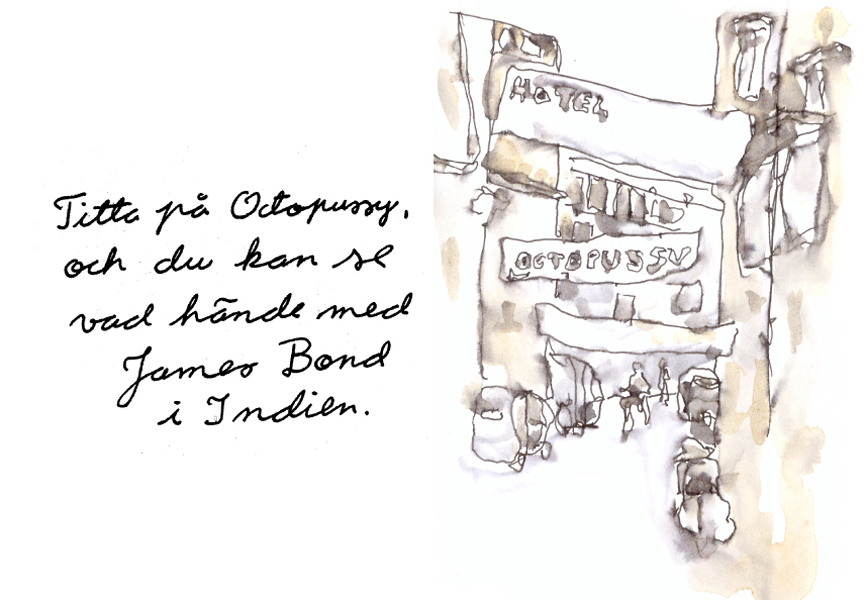 Titta på Octopussy,
och du kan se
vad hände med
James Bond
i Indien.
HOTEL
OCTOPUSSY